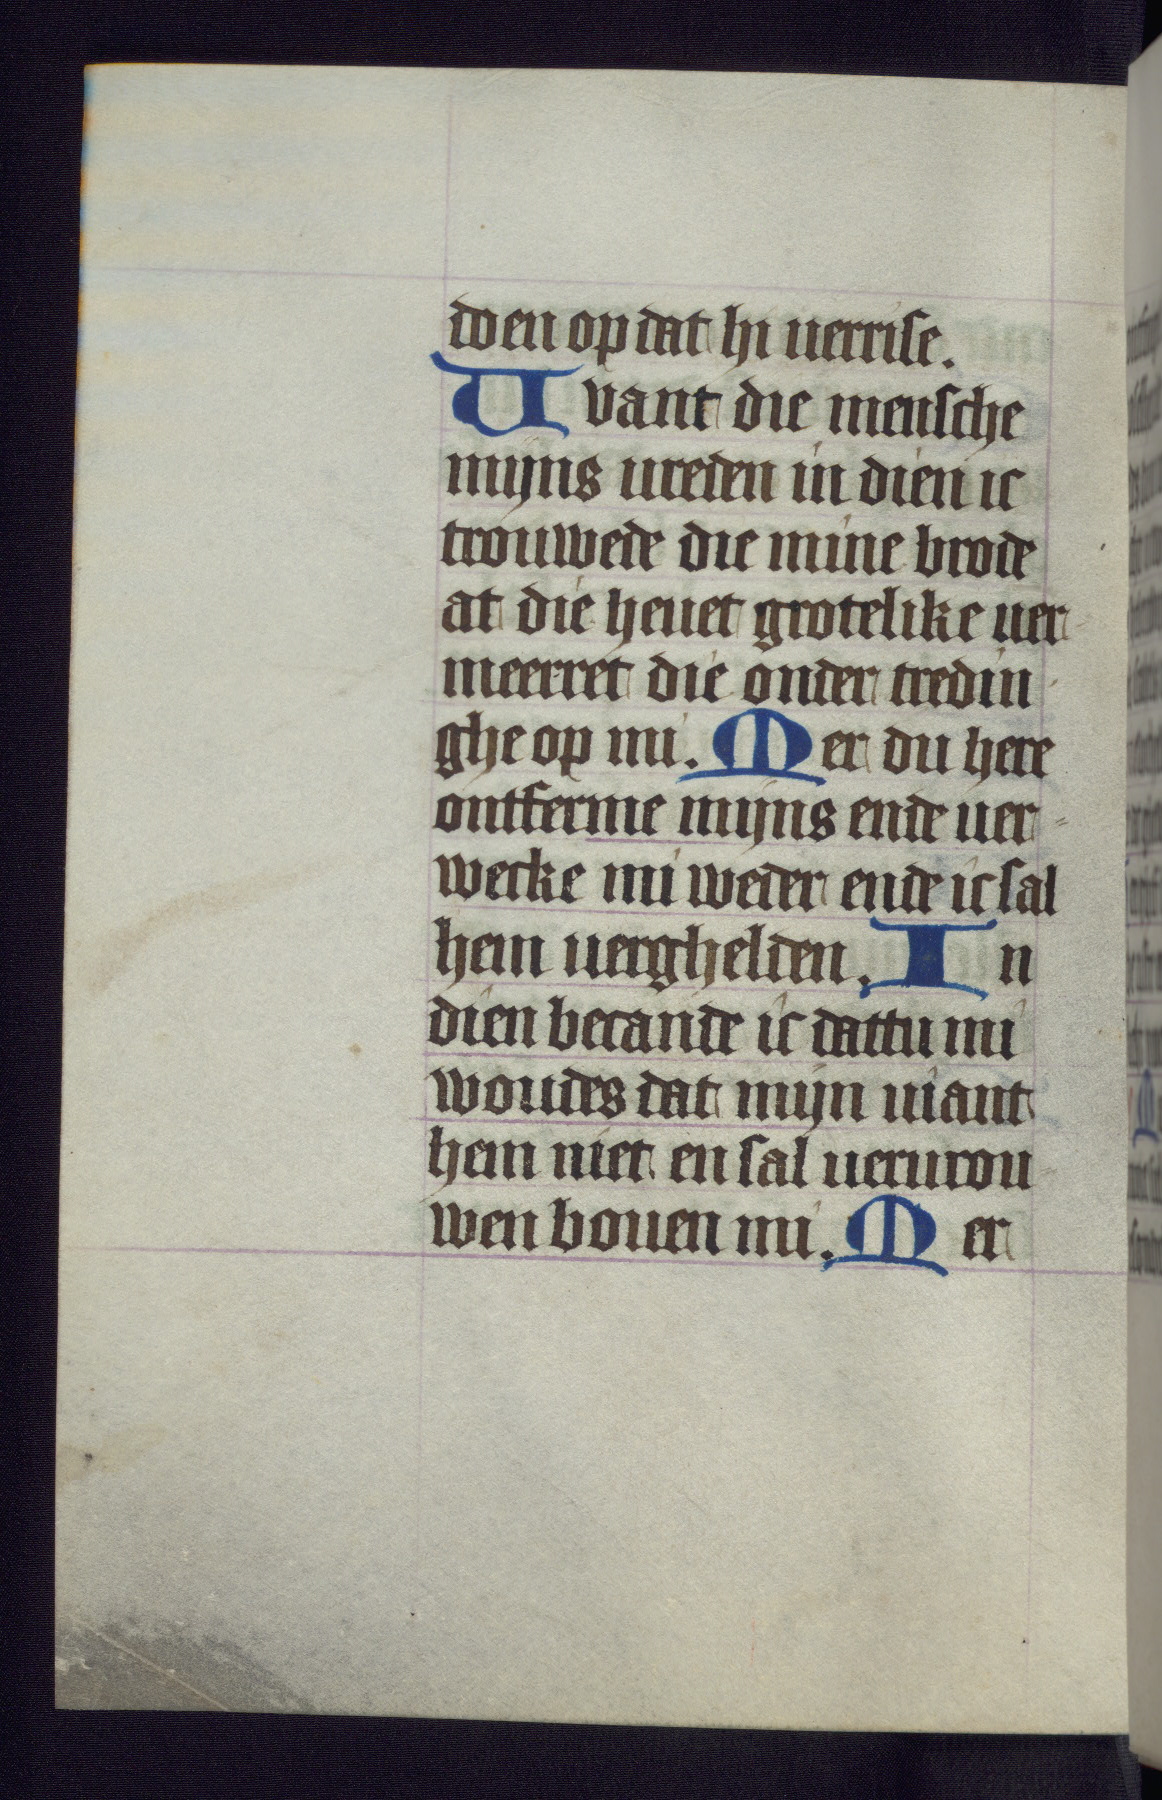 doen op dat hi uerrise.
Uvant die mensche
mijns ureden in dien ic
trouwede die mine brode
at die heuet grotelike uer-
meerret die onder tredin
ghe op mi. Mer du here
ontferme mijns ende uer-
wecke mi weder ende ic sal
hem uerghelden. In
dien becande ic dattu mi
woudes dat mijn uiant
hem niet en sal uerurou
wen bouen mi. Mer